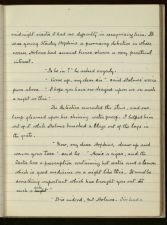 midnight visitor I had no difficulty in recognising him. It
was young Stanley Hopkins a promising detective in whose
career Holmes had several times shown a very practical
interest.
"Is he in?" he asked eagerly.
"Come up, my dear sir" said Holmes' voice
from above. "I hope you have no designs upon us on such
a night as this"
The detective mounted the stairs, and our
lamp gleamed upon his shining waterproof. I helped him
out of it while Holmes knocked a blaze out of the logs in
the grate.
"Now, my dear Hopkins, draw up and
warm your toes" said he. "Here's a cigar, and the
Doctor has a prescription containing hot water and a lemon
which is good medicine on a night like this. It must be
something important which has brought you out in
such a